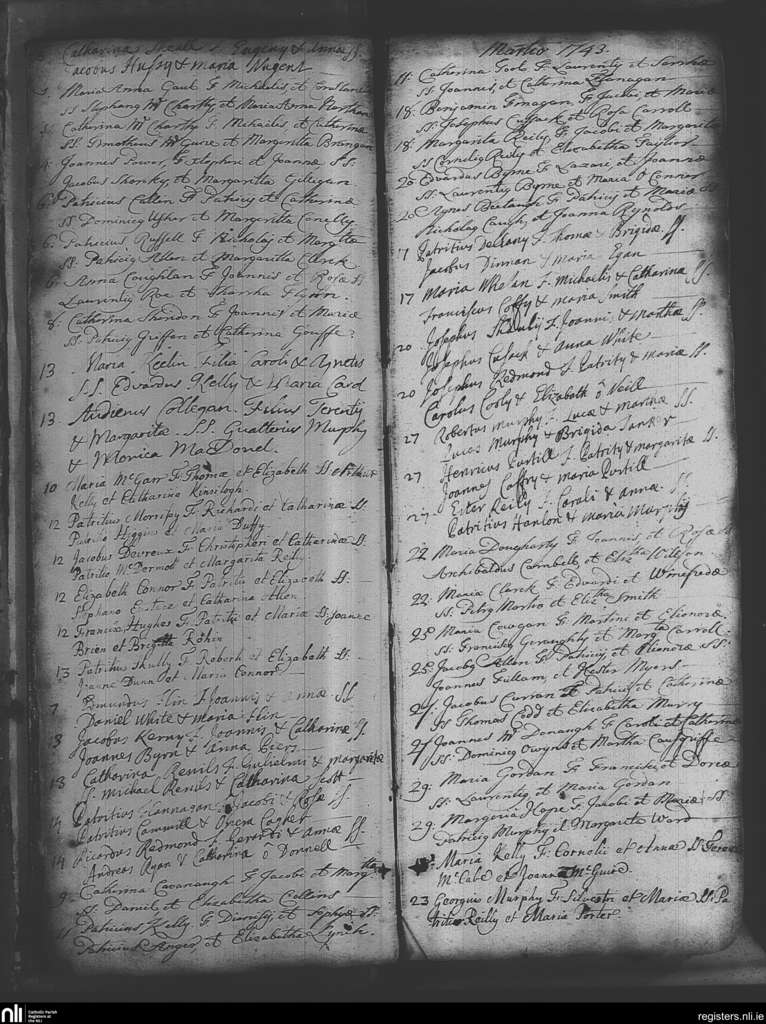 Catharina & Eugeny & Anna SS
Jacobus Hussy & Maria Nugent
Maria Anna Gaul F Michaelis, et
SS Stephany Mc Charthy et Maria Anna
Catherina Mc Charthy F Michaelis, et Catherina
SS. Timotheus Mc Guire et Margarita Branigan
Joannes Power, F Stephen et Joannæ SS.
Jacobus Shonky, et Margaritta Gillegan
6 Patricius Callen F Patricy et Catherinæ
SS Dominicy Usher et Margeritta Canelly
6. Patricius Russell F Nicholaj et Margttæ
SS. Patricy Allen et Margaritta Clark
6 Anna Coughlan F Joannis et Rosæ SS
Laurenty Roe et Martha Flynn.
8. Catherina Sheridan F Joannis et Mariæ
SS. Patricy Griffen et Catherina
13 Maria Keelin Filia Caroli & Agnetis
S.S. Edvardus Kelly & Maria Card
13. Audienus Collegan. Filius Terenty
& Margarita. SS. Gualterius Murphy
& Monica MacDonel.
10 Maria McGarr F Thomæ et Elizabeth SS
Kelly et Catharina Kinselogh
12 Patritius Morrissy F Richardi et Catharinæ SS.
Patritio Higgins et Maria Duffy
12 Jacobus Devreux F Christopheri et Catherinæ SS.
Patritio McDermott et Margarita Reily
12 Elizabeth Connor F Patritij et Elizabeth SS.
Stephano Eustace et Catharina Allen
12 Francis Hughes F Patritij et Mariæ SS. Joanne
Brien et Brigitta
13 Patritius Skully F Roberti et Elizabeth SS.
Joanne Dunn et Maria Connor
7 Edmundus Flin F Joannis & Annæ SS
Daniel White & Maria Flin
3 Jacobus Kerny F Joannis & Catharinæ SS
Joannes Byrn & Anna Beers
13 Catharina Renils F Gulielmi & Margaritæ
S: Michael Renils & Catharina Scott
14 Patritius Flannagan F Jacobi & Rosæ SS.
Patritius & Cogner
14 Ricardus Redmond F Gerardi & Annæ SS.
Andreas Ryan & Catharina ô Donnell
9 Catherina Cavanaugh F Jacobi et Margttæ
SS. Daniel, et Elizabetha Collins
11 Patricius Kelly F Dionisy, et Sophiæ SS.
Patricius, et Elizabetha Lynch.
Martio 1743.
11. Catherina Fool F Laurenty et Sarahæ
SS Joannes, et Catherina Flanagan
18. Benjamin Finagan, F Jacobi, et Mariæ
SS. Josephus Cussack et Rosa Carroll
18. Margarita Reily F Jacobi et Margarita
SS Cornelig Reily et Elizabetha Taylor
20 Edvardus Byrne F Lazari, et Joannæ
SS. Laurentig Byrne et Maria O Connor
20 Agnes F Patricy et Mariæ SS
Nicholas, et Joanna Rynolds
7 Patritius Dellany F Thomæ & Brigidæ SS.
Jacobus Dinnan & Maria Egan
17 Maria Whelan F. Michaelis & Catharinæ SS.
Franciscus Coffy & Maria Smith
20 Josephus F Joannis, & Marthæ SS.
Josephus Cusack & Anna White
20 Josephus Redmond F Patrity & Mariæ SS.
Carolus Cooly & Elizabeth ô Neill
27 Robertus Murphy F Lucæ & Marthæ SS.
Lucas Murphy & Brigida
27 Henricus Purtill F Patrity & Margaritæ SS.
Joannes Coffry & Maria Purtill
27 Ester Reily F Caroli & Annæ. SS.
Patritius Hanlon & Maria Murphy
22 Maria Dougharty F Joannis, et Rosæ SS
Archibaldus Cambell, et Elizth Willson
22 Maria Clerck F Edvardi et Winefridæ
SS. Petry et Elizth Smith
25 Maria Cowgan F Martini et Elionoræ
SS. Francisig Geraughty et Margta Carroll
25 Jacoby Allen F Patricy et Elienoræ SS.
Joannes Fullam, et Hester Myers
27. Jacobus Curran F Patricy et Catherinæ
SS Thomas Codd et Elizabetha Murry
27 Joannes Mc Donaugh F Caroli et Catherinæ
SS. Dominicg et Martha
29. Maria Gordan F Francisci et Dorcæ
SS. Laurentig et Maria Gordan
29. Margeria Hope F Jacobi et Mariæ SS.
Patricig Murphy et Margarita Ward
Maria Kelly F. Cornelii et Annæ SS. Teren
McCabe et Joanna McGuire.
23 Georgius Murphy F Silvestri et Mariæ SS. Pa
tritio Reilly et Maria Porter.
nli
Catholic Parish
Registers at
the NLI
registers.nli.ie